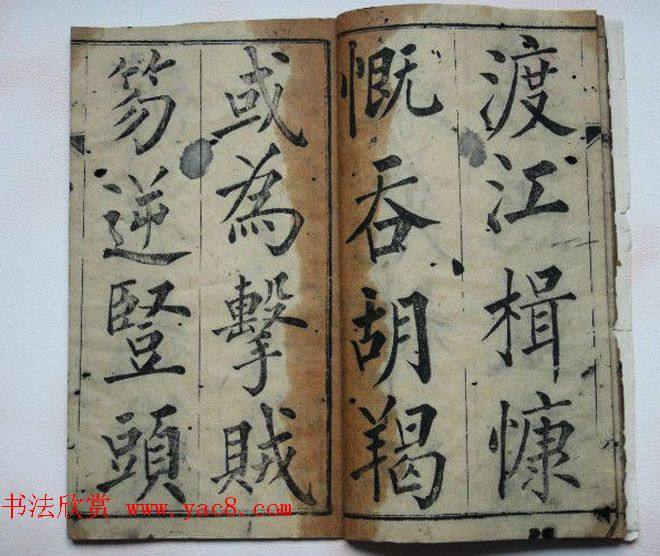 渡江楫慷
慨吞胡羯
或為擊賊
笏逆豎頭
书法欣赏 www.yac8.com